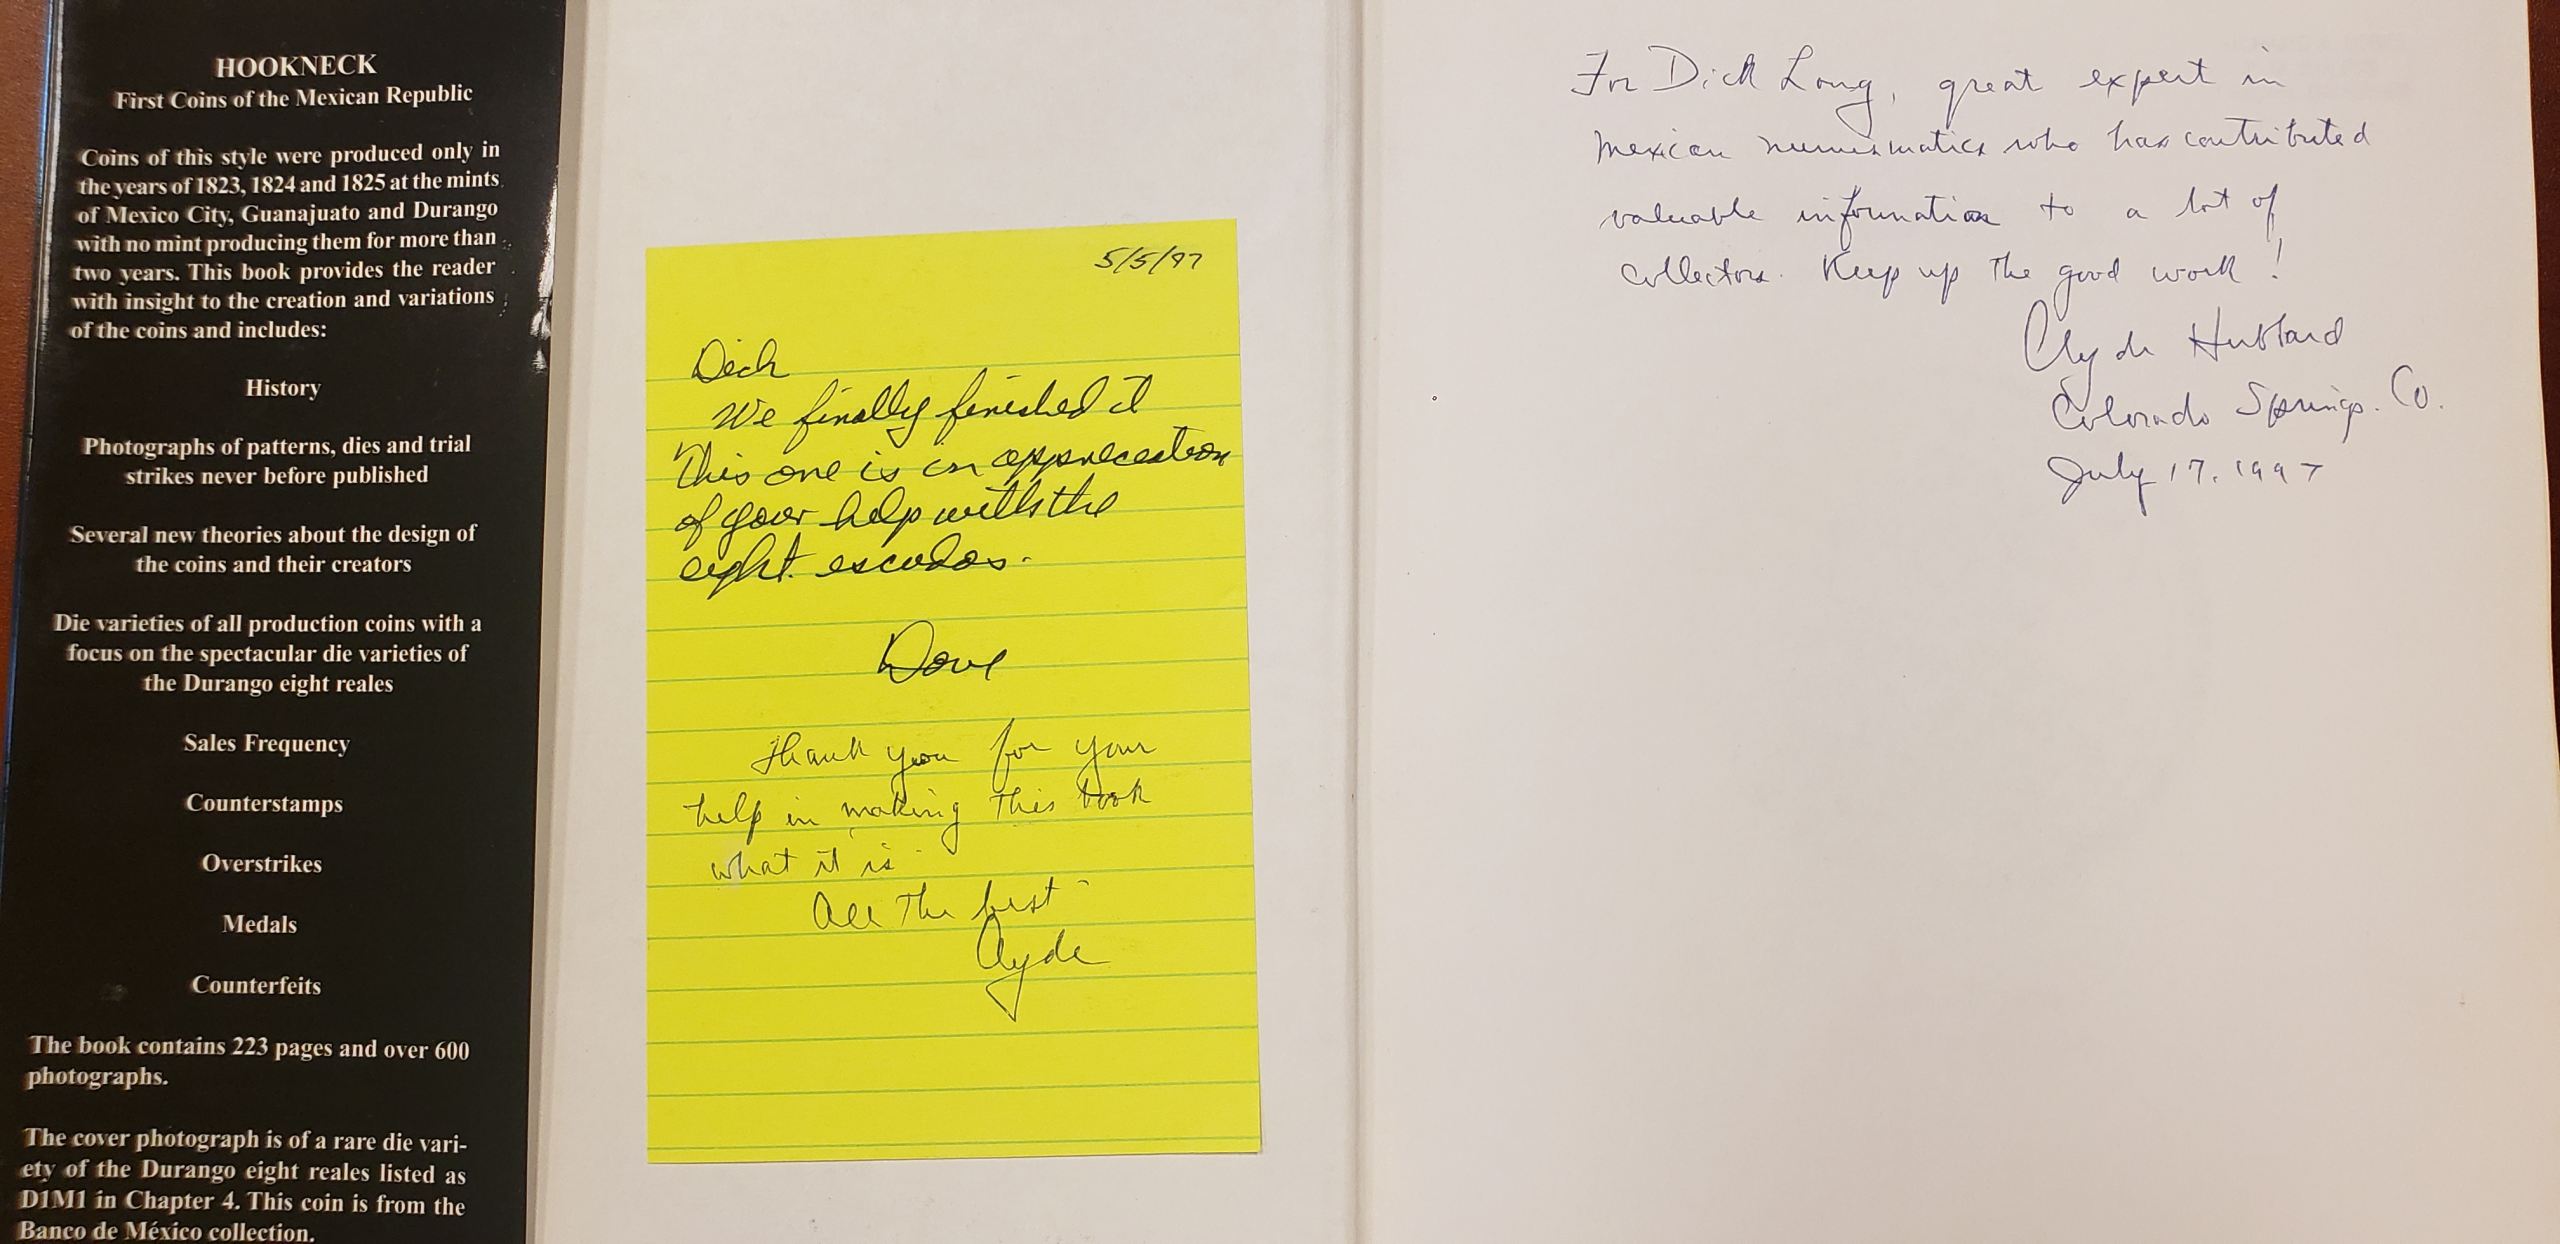 HOOKNECK
First Coins of the Mexican Republic
Coins of this style were produced only in
the years of 1823, 1824 and 1825 at the mints
of Mexico City, Guanajuato and Durango
with no mint producing them for more than
two years. This book provides the reader
with insight to the creation and variations
of the coins and includes:
History
Photographs of patterns, dies and trial
strikes never before published
Several new theories about the design of
the coins and their creators
Die varieties of all production coins with a
focus on the spectacular die varieties of
the Durango eight reales
Sales Frequency
Counterstamps
Overstrikes
Medals
Counterfeits
The book contains 223 pages and over 600
photographs.
The cover photograph is of a rare die vari-
ety of the Durango eight reales listed as
D1M1 in Chapter 4. This coin is from the
Banco de México collection.
5/5/97
Dick
We finally finished it
This one is in appreciation
of your help with the
eight escudos.
Dave
Thank you for your
help in making this book
what it is.
All the best -
Clyde
For Dick Long, great expert in
Mexican numismatics who has contributed
valuable information to a lot of
collectors. Keep up the good work!
Clyde Hubbard
Colorado Springs. Co.
July 17. 1997